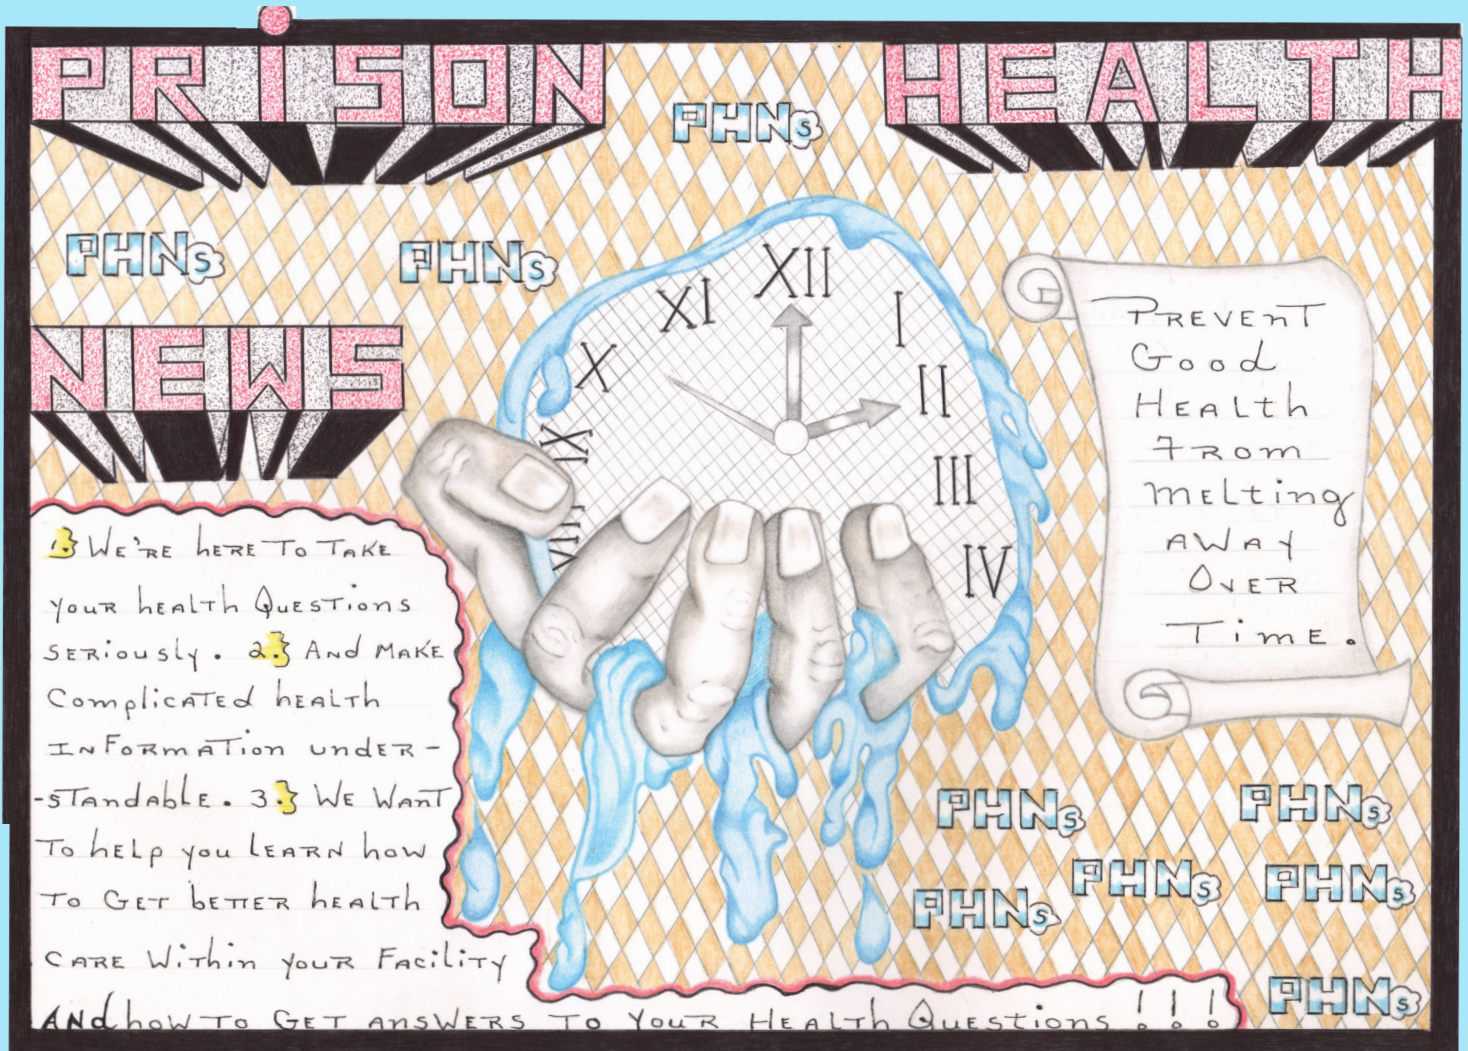 PRiSON
HEALTH
PHNs
PHNs
PHNs
NEWS
XII
XI
I
X
II
IX
III
VIII
IV
PREVEnT
Good
HEALth
FRom
mELting
AWAY
OvER
TimE.
1.} WE'RE hERE To TAKE
youR hEALTH QuESTIONS
SERiously. 2.} AND MAKE
ComplicATEd hEALTH
INFoRmATion undER-
-sTandablE. 3.} WE WanT
To hELp you LEARN how
To GET bETTER hEALTH
CARE WiThin youR FAciLiTy
ANd how To GET ansWERS To YouR HEALth QuEstions!!!
PHNs
PHNs
PHNs
PHNs
PHNs
PHNs